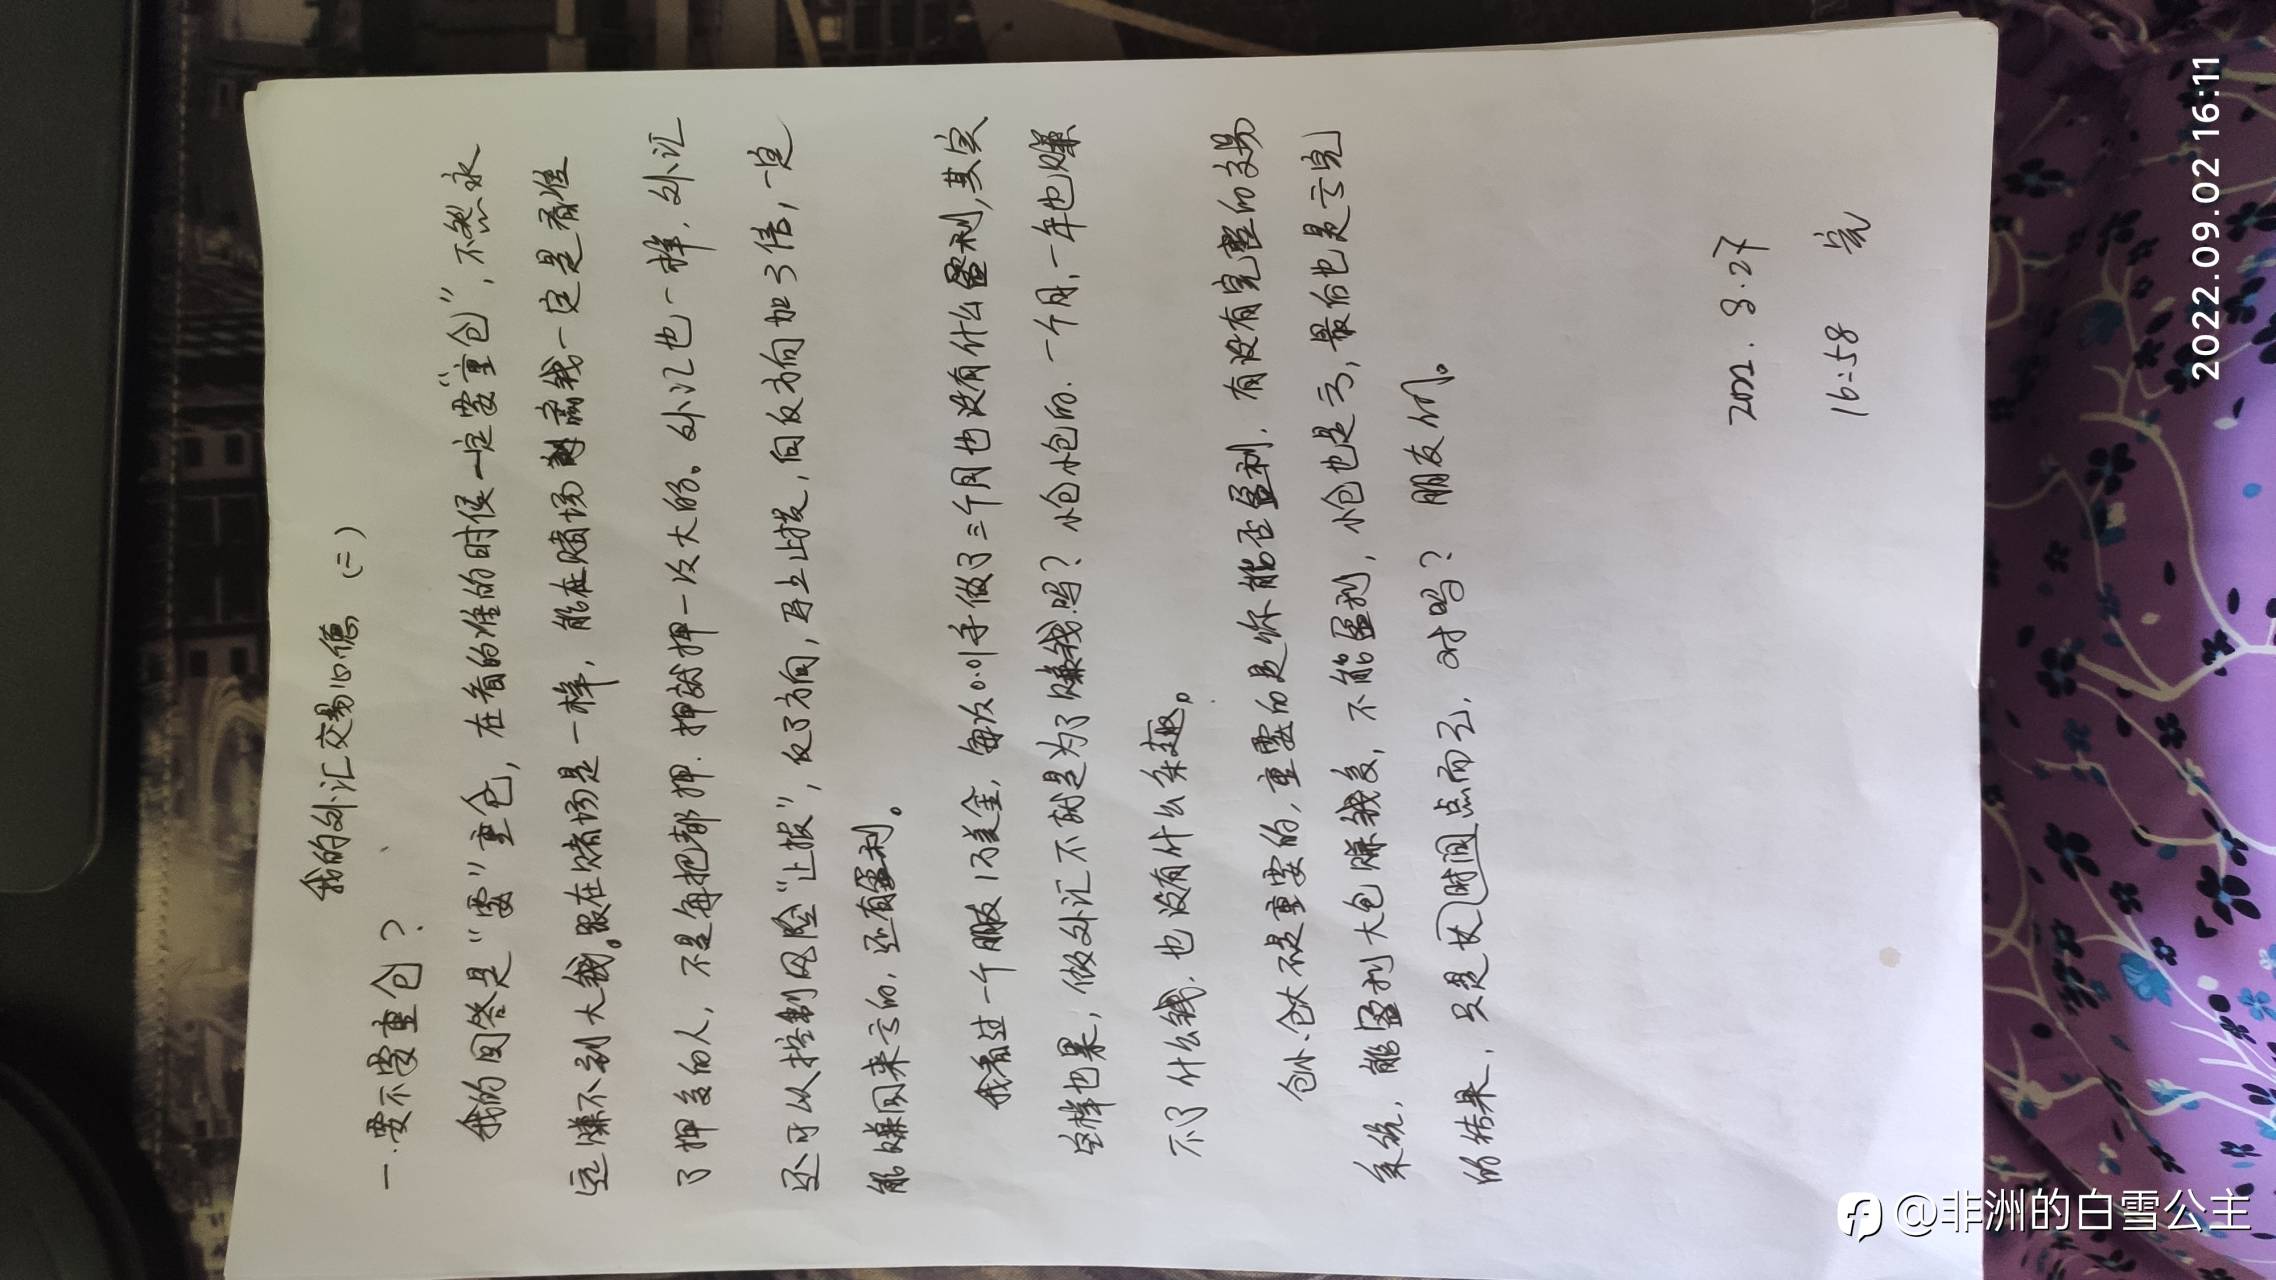 我的外汇交易心德 (二)
一.要不要重仓?
我的回答是“要”重仓, 在看的准的时侯一定要“重仓”, 不然永
远赚不到大钱。跟在赌场是一样, 能在赌场赢钱一定是看准
了押多的人, 不是每把都押. 押就押一次大的。外汇也一样. 外汇
还可以控制风险“止损”, 反了方向, 马上止损, 向反方向加3倍, 一定
能赚回来亏的. 还有盈利。
我看过一个朋友1万美金, 每次0.01手做了三个月也没有什么盈利,其实
这样也累, 做外汇不就是为了赚钱吗? 小仓小仓的. 一个月, 一年也赚
不了什么钱. 也没有什么乐趣。
仓小、仓大不是重要的, 重要的是你能否盈利. 有没有完整的交易
系统. 能盈利大仓赚钱多, 不能盈利, 小仓也是亏, 最后也是亏完
的结果. 只是时间点而已. 对吗? 朋友们。
2022. 8.27
16:58 完
2022.09.02 16:11
@非洲的白雪公主